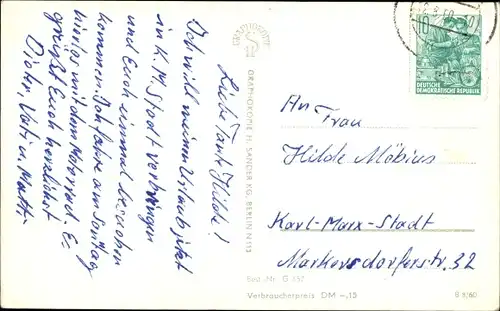 Liebe Tante Hilde!
Ich will meinen Urlaub jetzt
in K. M. Stadt verbringen
und Euch einmal besuchen
kommen. Ich fahre am Sonntag
hier los mit dem Motorrad. Es
grüßt Euch herzlichst
Vati u. Mutti.
GRAPHOKOPIE
GRAPHOKOPIE H. SANDER KG. BERLIN N 113
10
DEUTSCHE
DEMOKRATISCHE REPUBLIK
An
Frau
Hilde Möbius
Karl-Marx-Stadt
Markersdorferstr. 32
Best.-Nr. G
Verbraucherpreis DM -,15
B 8/60